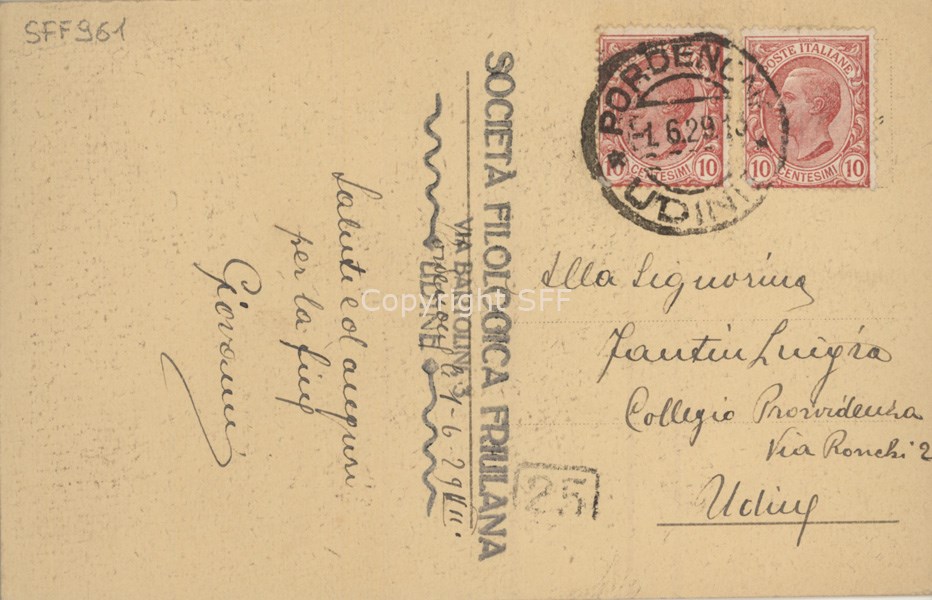 SFF961
SOCIETÀ FILOLOGICA FRIULANA
VIA BARTOLINI 3
UDINE
1-6-29 VII
Saluti ed auguri
per la fine
Giovanni
PORDENONE
1.6.29.18
UDINE
POSTE ITALIANE
10 CENTESIMI 10
POSTE ITALIANE
10 CENTESIMI 10
Alla Signorina
Fantin Luigia
Collegio Provvidenza
Via Ronchi 2
Udine
25
Copyright SFF